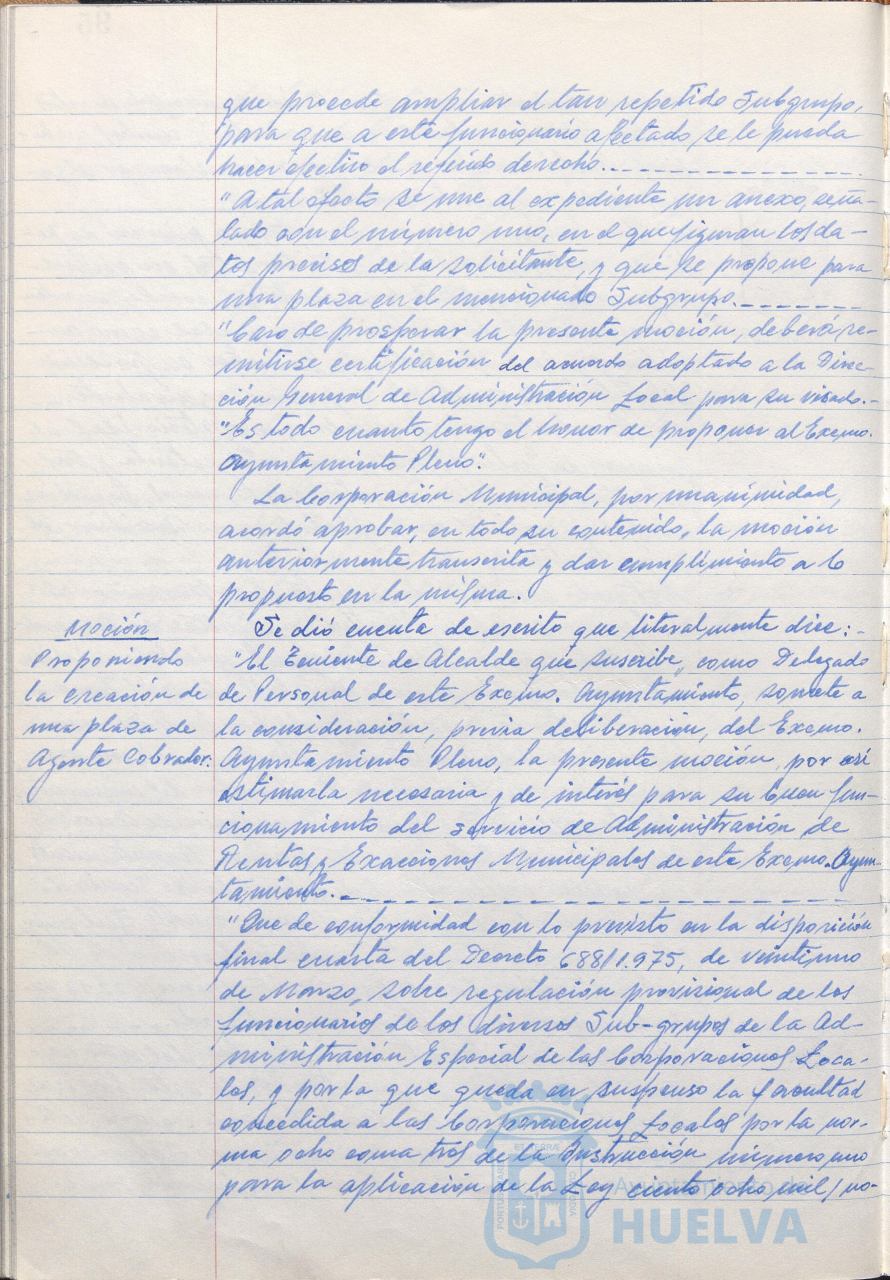 que procede ampliar el tan repetido Subgrupo,
para que a este funcionario afectado se le pueda
hacer efectivo el referido derecho.
"A tal efecto se une al expediente un anexo, seña-
lado con el número uno, en el que figuran los da-
tos precisos de la solicitante, y que se propone para
una plaza en el mencionado Subgrupo.
"Caso de prosperar la presente moción, deberá re-
mitirse certificación del acuerdo adoptado a la Direc-
ción General de Administración Local para su visado.-
"Es todo cuanto tengo el honor de proponer al Excmo.
Ayuntamiento Pleno".
La Corporación Municipal, por unanimidad,
acordó aprobar, en todo su contenido, la moción
anteriormente transcrita y dar cumplimiento a lo
propuesto en la misma.
Moción
Proponiendo
la creación de
una plaza de
Agente Cobrador.
Se dió cuenta de escrito que literalmente dice:-
"El Teniente de Alcalde que suscribe, como Delegado
de Personal de este Excmo. Ayuntamiento, somete a
la consideración, previa deliberación, del Excmo.
Ayuntamiento Pleno, la presente moción, por así
estimarla necesaria y de interés para su buen fun-
cionamiento del servicio de Administración de
Rentas y Exacciones Municipales de este Excmo. Ayun-
tamiento.
"Que de conformidad con lo previsto en la disposición
final cuarta del Decreto 688/1.975, de veintiuno
de Marzo, sobre regulación provisional de los
funcionarios de los diversos Sub-grupos de la Ad-
ministración Especial de las Corporaciones Loca-
les, y por la que queda en suspenso la facultad
concedida a las Corporaciones Locales por la nor-
ma ocho coma tres de la Instrucción número uno
para la aplicación de la Ley ciento ocho mil/no-
Ayuntamiento de
HUELVA